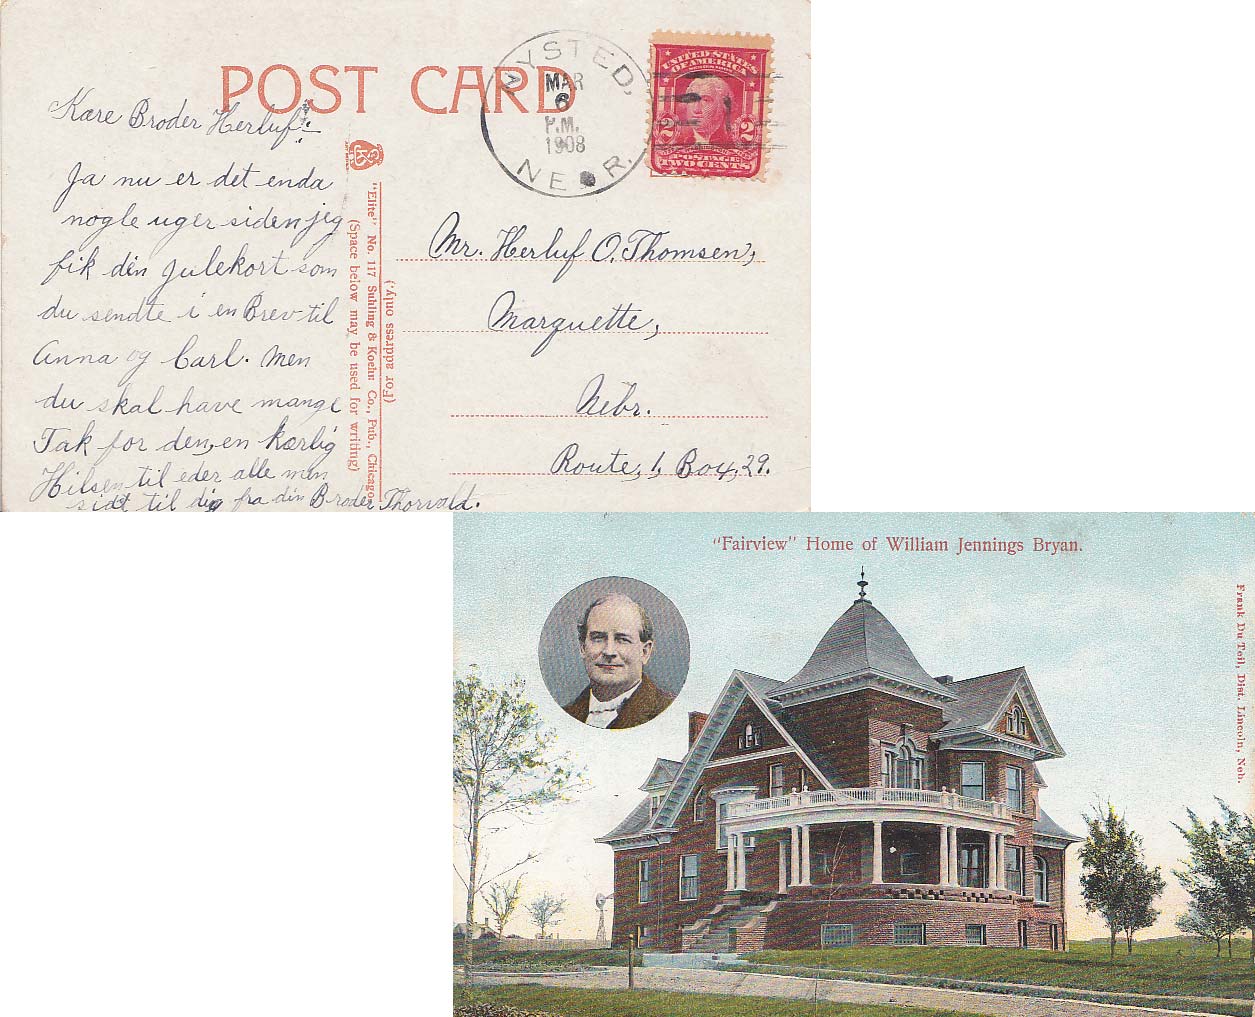 POST CARD
NYSTED,
MAR
6
P.M.
1908
NEBR.
UNITED STATES
OF AMERICA
2 2
POSTAGE
TWO CENTS
Kære Broder Herluf!:
Ja nu er det enda
nogle uger siden jeg
fik din Julekort som
du sendte i en Brev til
Anna og Carl. Men
du skal have mange
Tak for den, en kærlig
Hilsen til eder alle men
sidt til dig fra din Broder Thorvald.
"Elite" No. 117 Suhling & Koehn Co., Pub., Chicago
(Space below may be used for writing)
(For address only.)
Mr. Herluf O. Thomsen,
Marquette,
Nebr.
Route, 1, Box, 29.
"Fairview" Home of William Jennings Bryan.
Frank Du Teil, Dist. Lincoln, Neb.